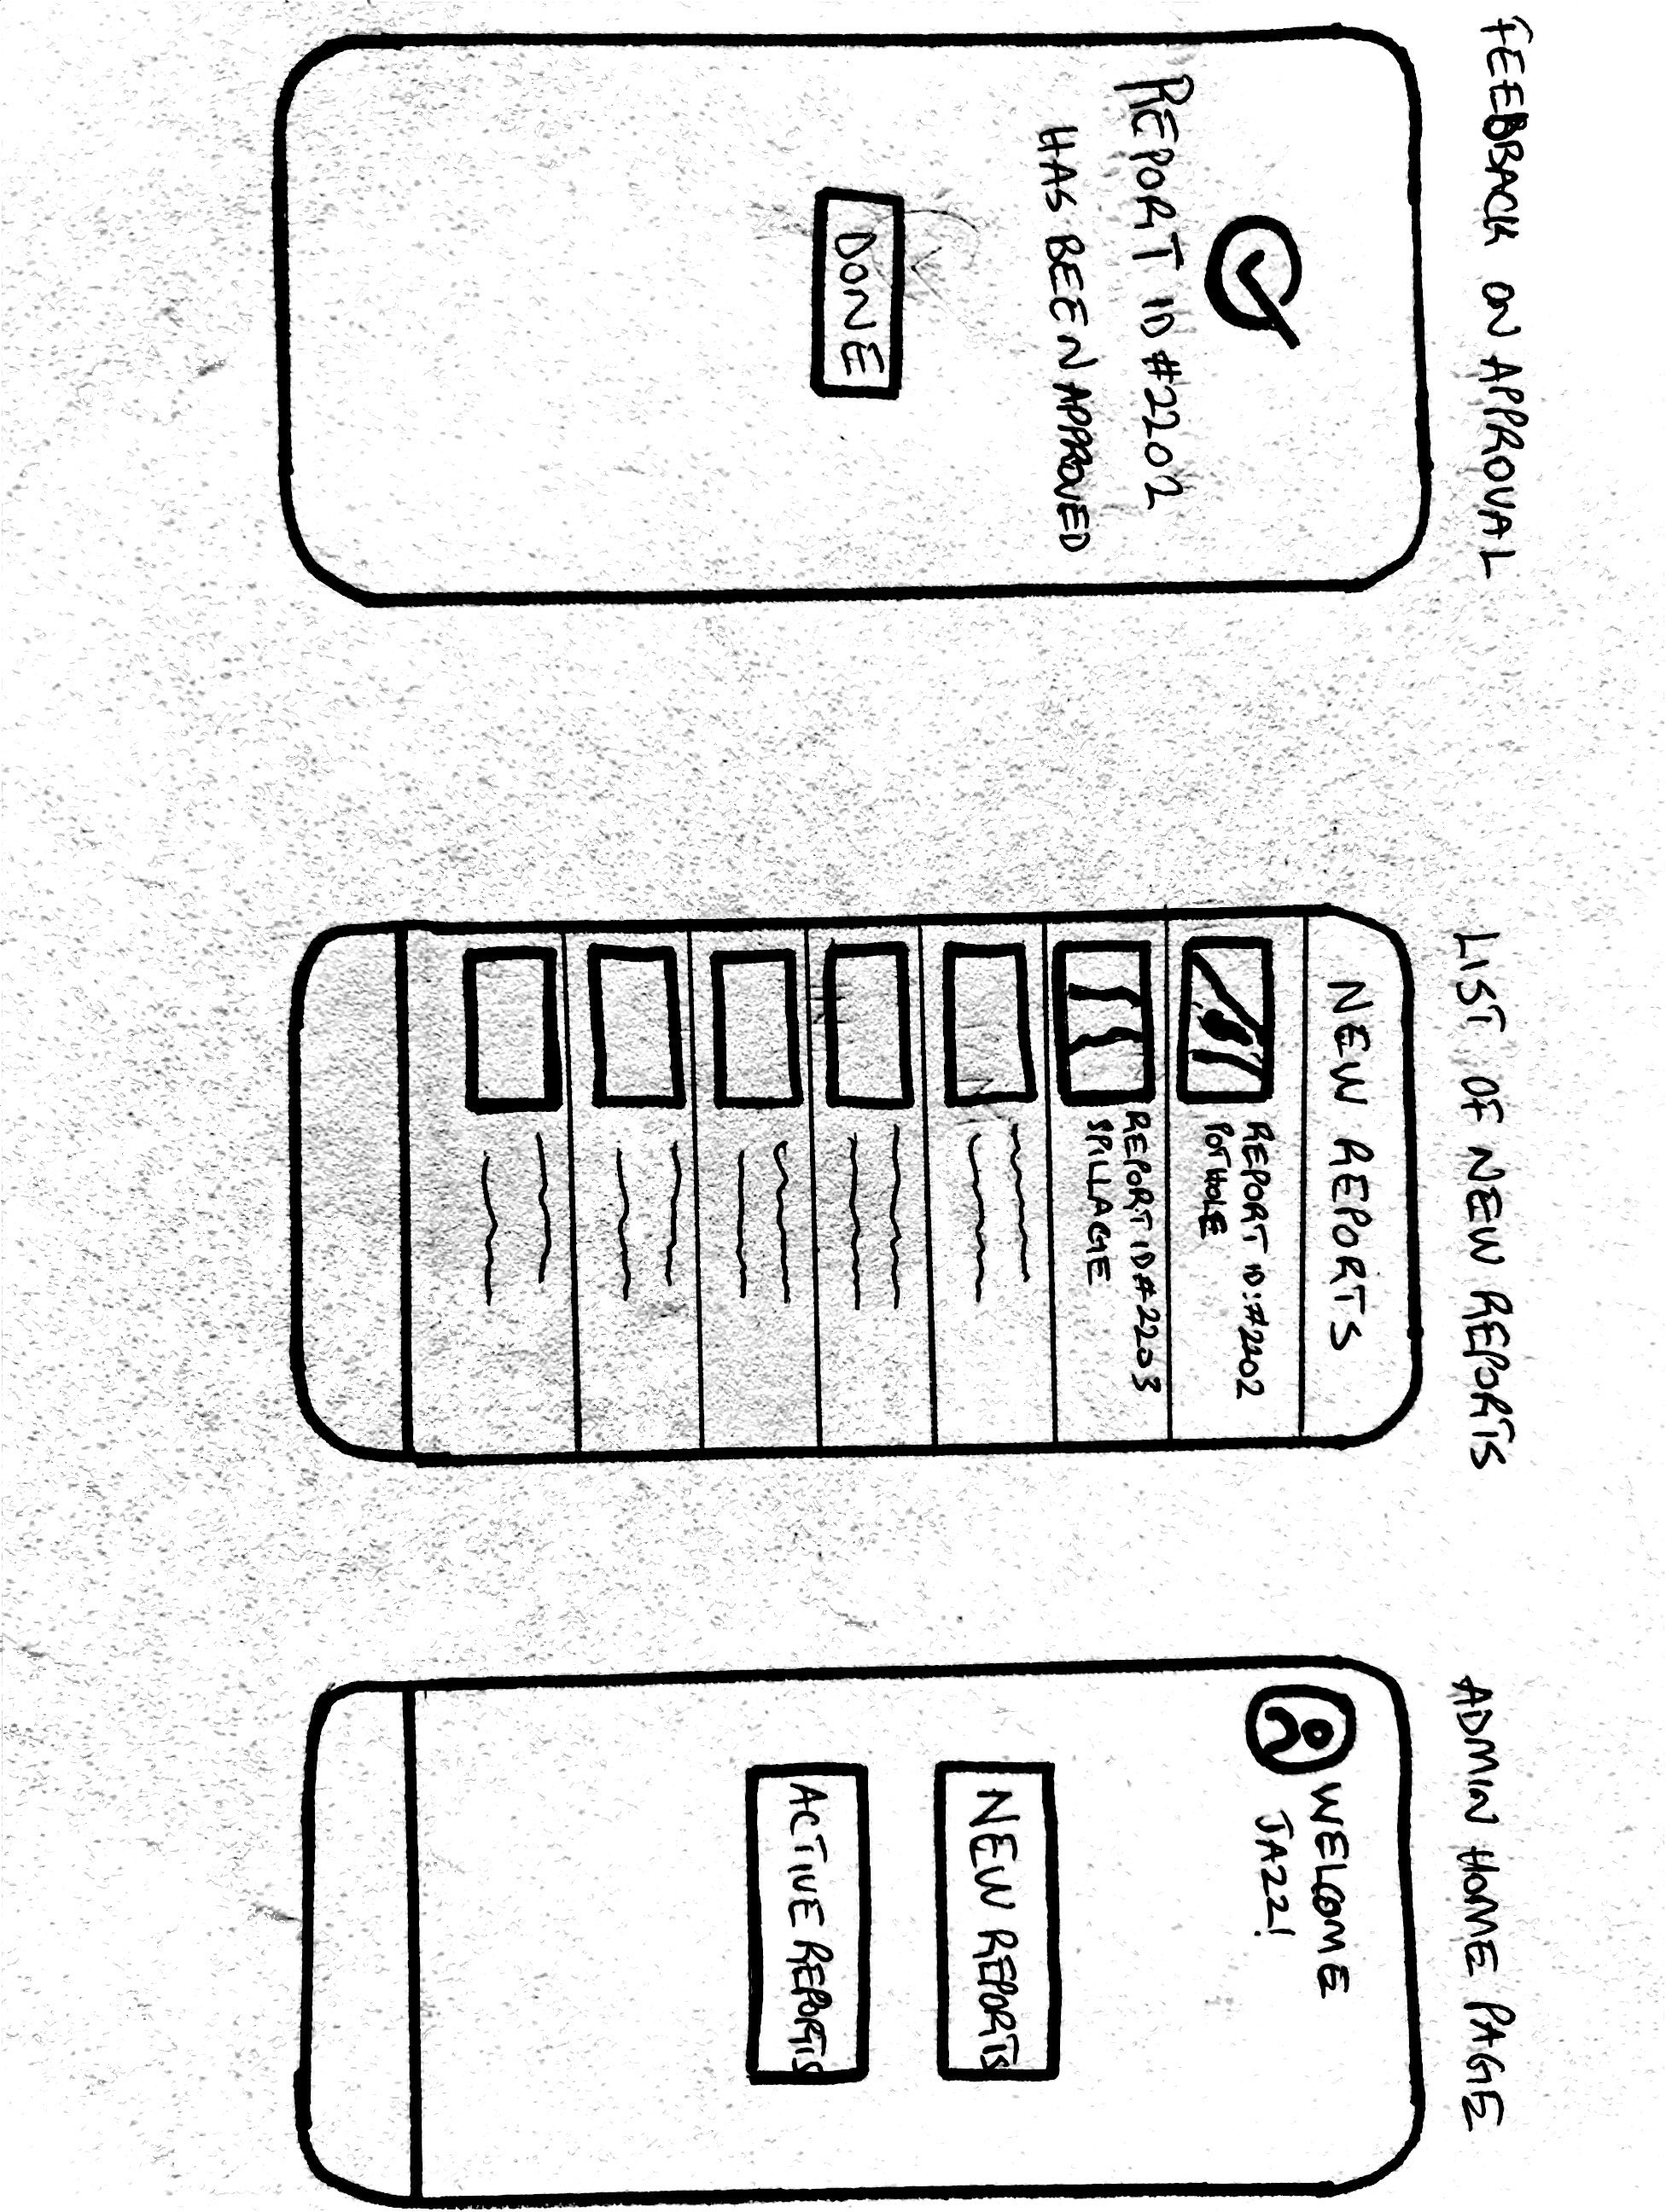 FEEDBACK ON APPROVAL
REPORT ID #2202
HAS BEEN APPROVED
DONE
LIST OF NEW REPORTS
NEW REPORTS
REPORT ID:#2202
POTHOLE
REPORT ID #2203
SPILLAGE
ADMIN HOME PAGE
WELCOME
JAZZ!
NEW REPORTS
ACTIVE REPORTS